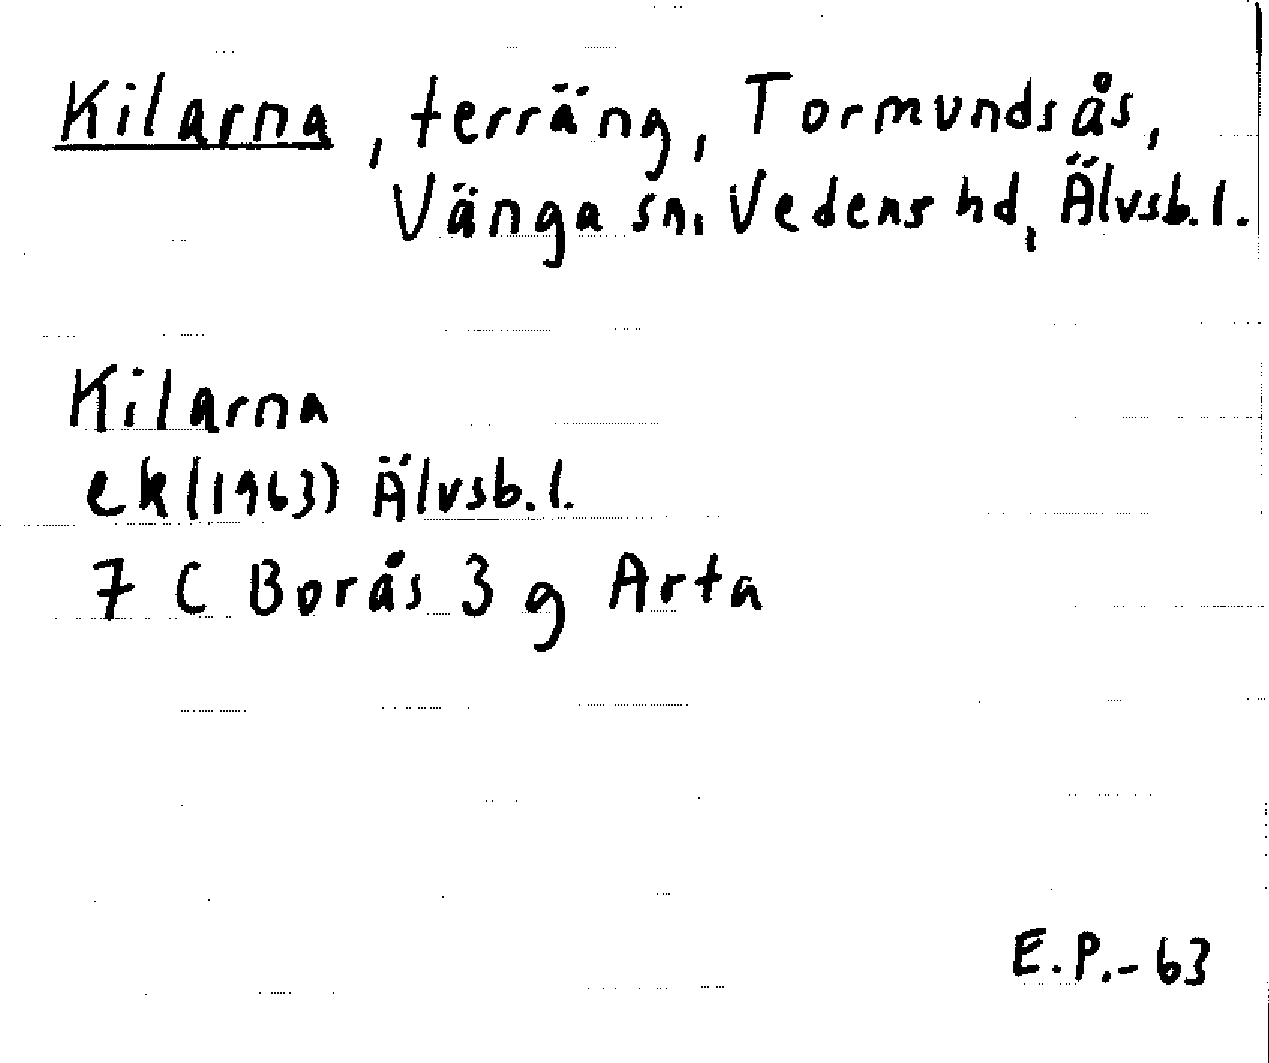 Kilarna, terräng, Tormundsås,
Vänga sn. Vedens hd, Älvsb. l.
Kilarna
ek (1963) Älvsb. l.
7 C Borås 3 g Arta
E.P.-63